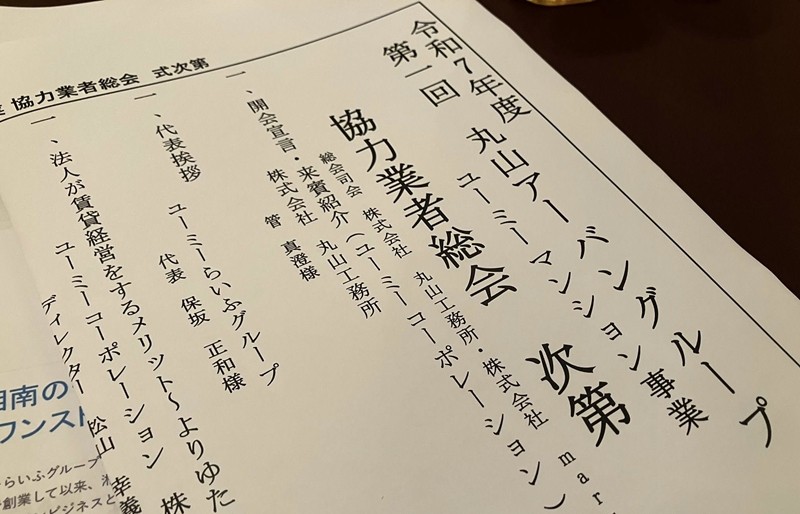 令和7年度 丸山アーバングループ
第一回 ユーミーマンション事業
協力業者総会 次第
総会司会 株式会社 丸山工務所・株式会社 mar
(ユーミーコーポレーション)
一、開会宣言・来賓紹介
株式会社 丸山工務所
管 真澄様
一、代表挨拶 ユーミーらいふグループ
代表 保坂 正和様
一、法人が賃貸経営をするメリット〜よりゆた
ユーミーコーポレーション 株
ディレクター 松山 幸義
協力業者総会 式次第
湘南の
ワンスト
らいふグループ
創業して以来、
ビジネスと